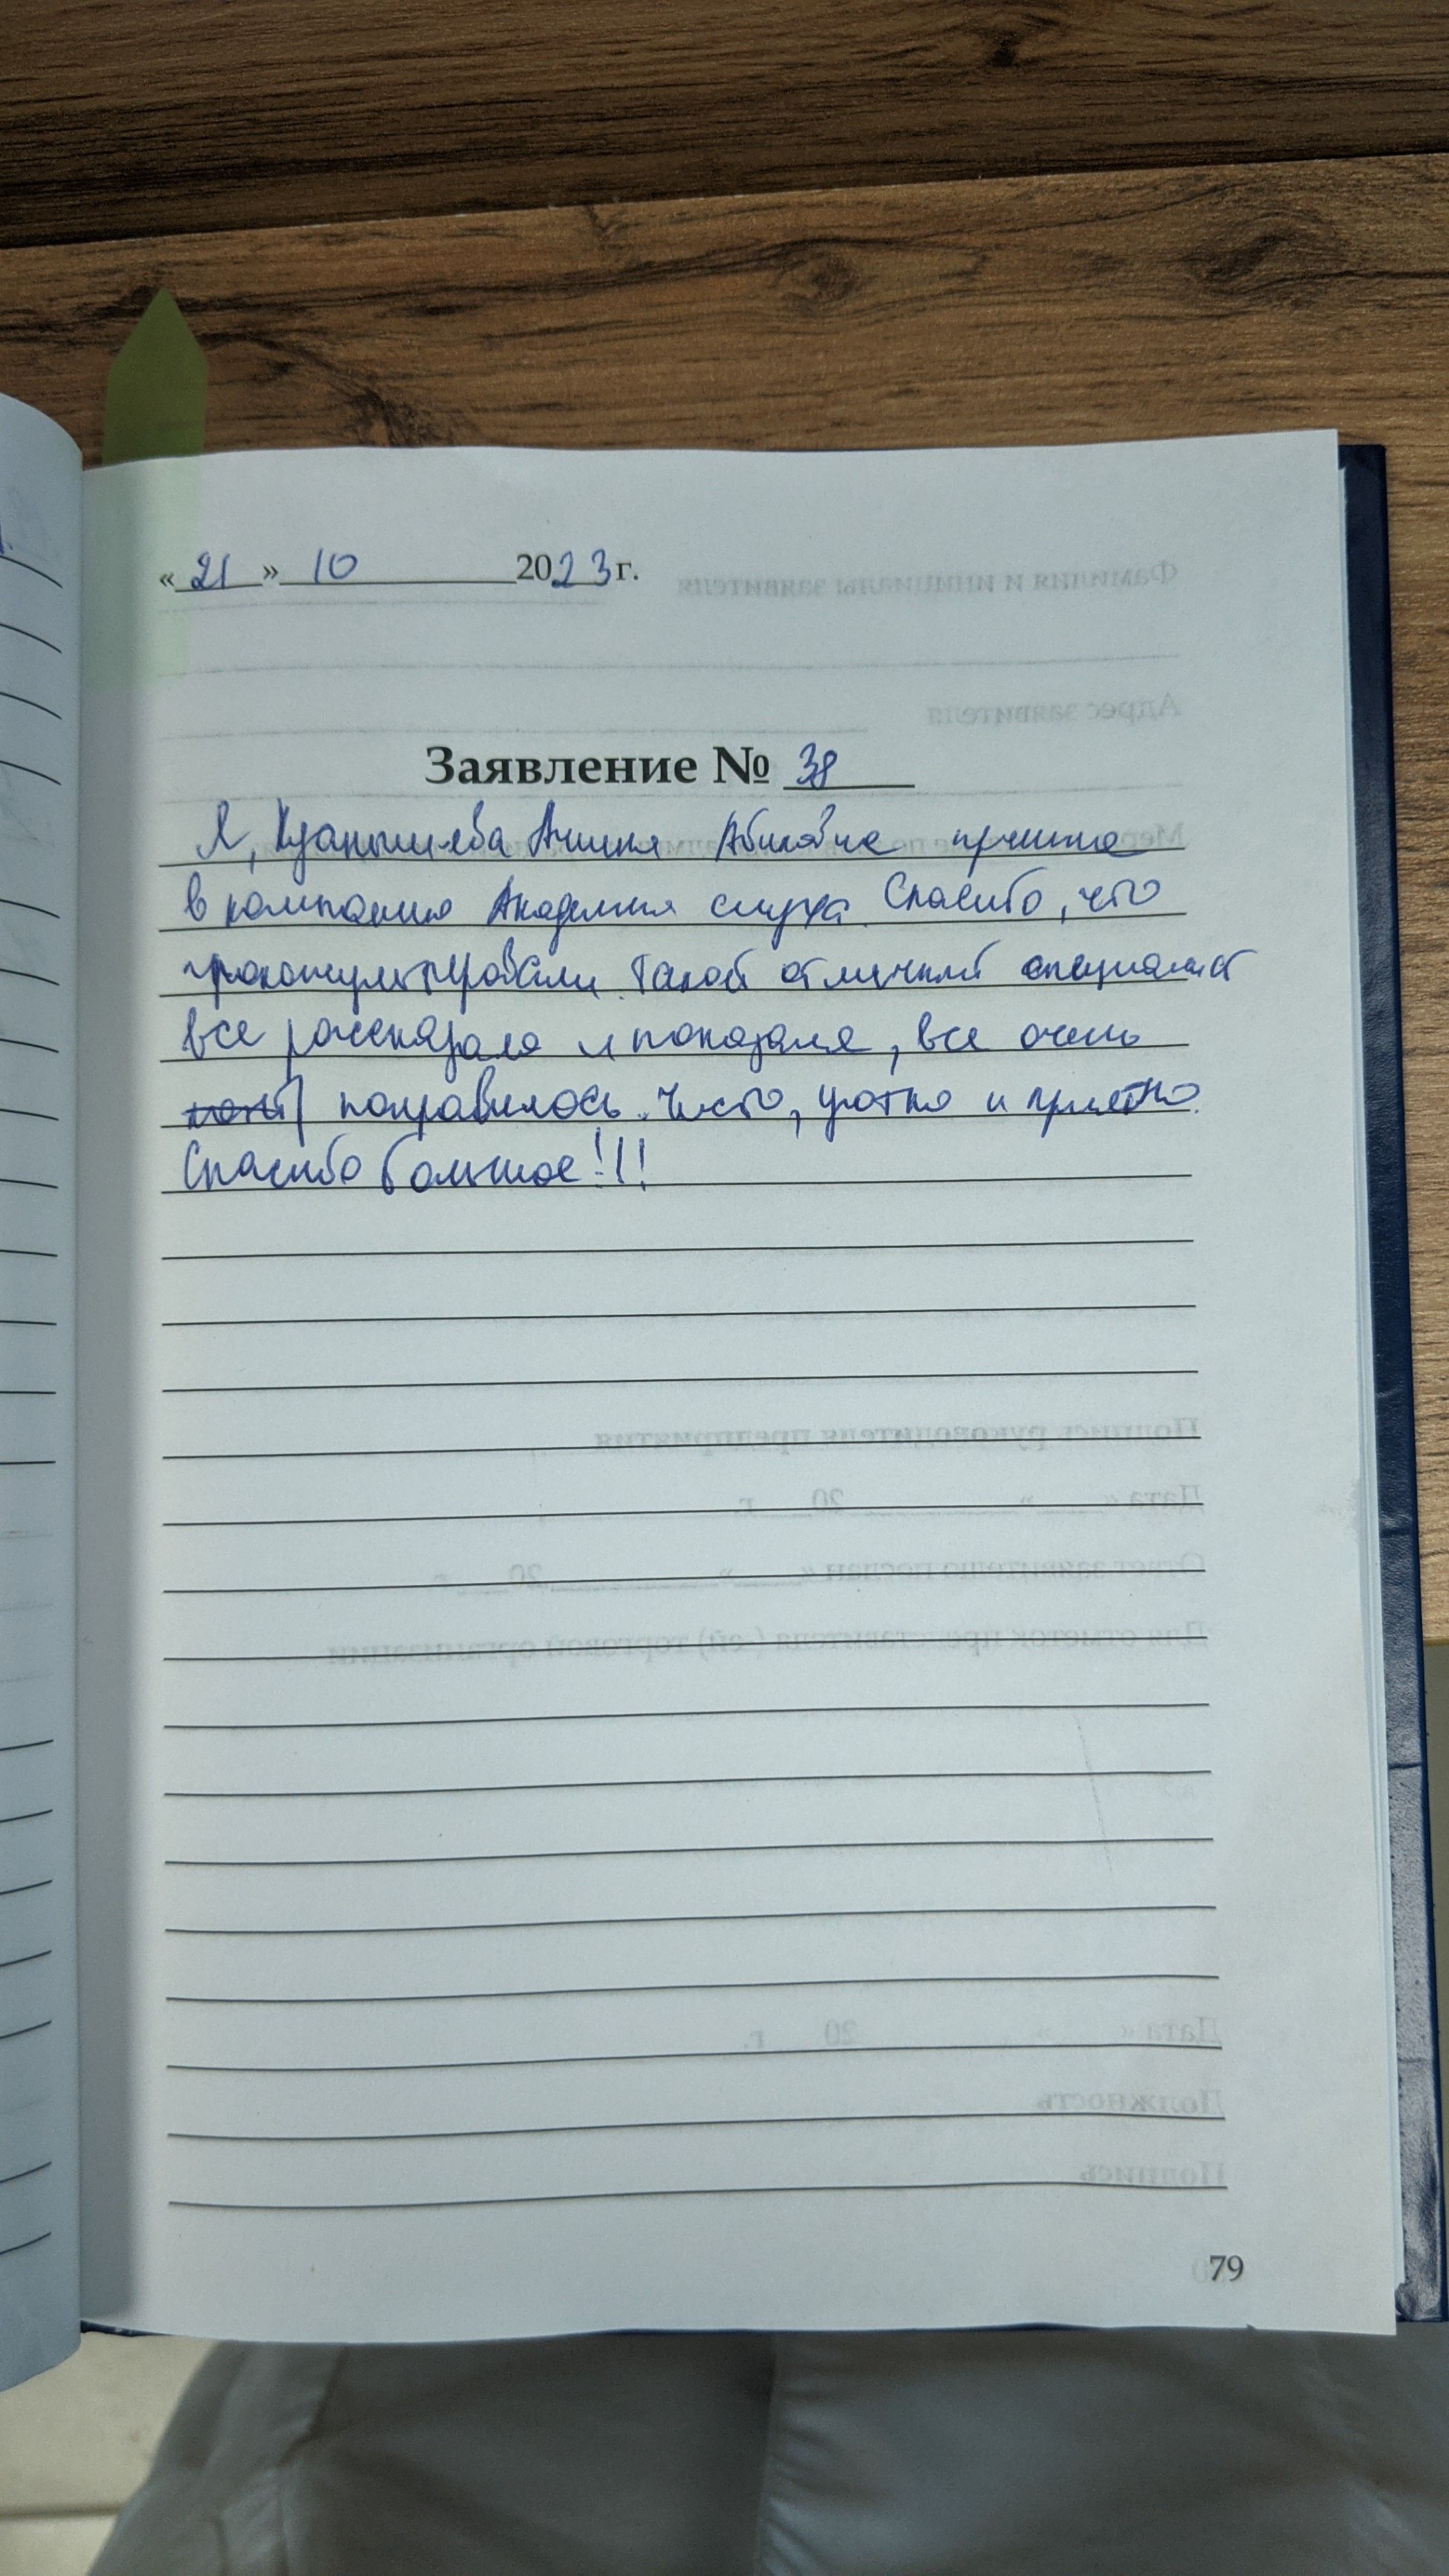 «21» 10 2023 г.
Заявление № 38
Я, Куанышева Абиловна пришла
в компанию Академия слуха. Спасибо, что
проконсультировали. Такой отличный специалист
все рассказала и показала, все очень
понравилось. Чисто, уютно и приятно.
Спасибо большое!!!
79